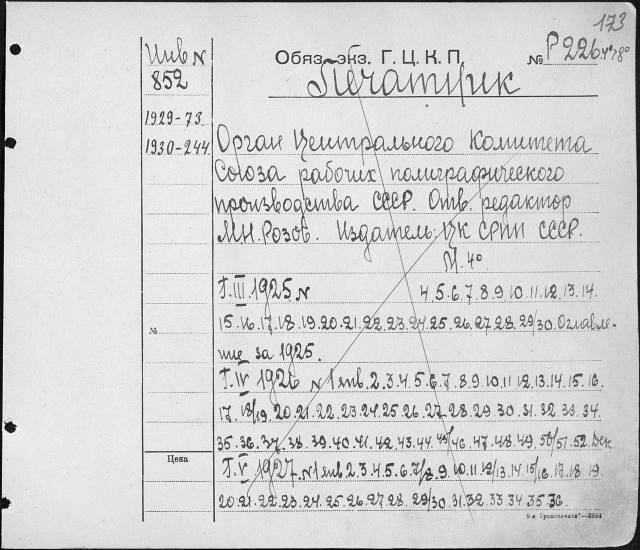 173
Инв N
Обяз. экз. Г. Ц. К. П.
№ Р 226. 4° 78°
852
Печатник
1929-73
1930-244
Орган Центрального Комитета
Союза рабочих полиграфического
производства СССР. Отв. редактор
М.Н. Розов. Издатель: ЦК СРПП СССР.
М. 4°
Г. III 1925 N 4.5.6.7.8.9.10.11.12.13.14.
15.16.17.18.19.20.21.22.23.24.25.26.27.28.29/30. Оглавле-
№
ние за 1925.
Г. IV 1926 N 1 янв. 2.3.4.5.6.7.8.9.10.11.12.13.14.15.16.
17.18/19.20.21.22.23.24.25.26.27.28.29.30.31.32.33.34
35.36.37.38.39.40.41.42.43.44.45/46.47.48.49.50/51.52. Дек
Цена
Г. V 1927. N 1 янв 2.3.4.5.6.7/8.9.10.11.12/13.14.15/16.17.18.19
20.21.22.23.24.25.26.27.28.29/30.31.32.33.34.35.36.
8-я Транспечать—3884